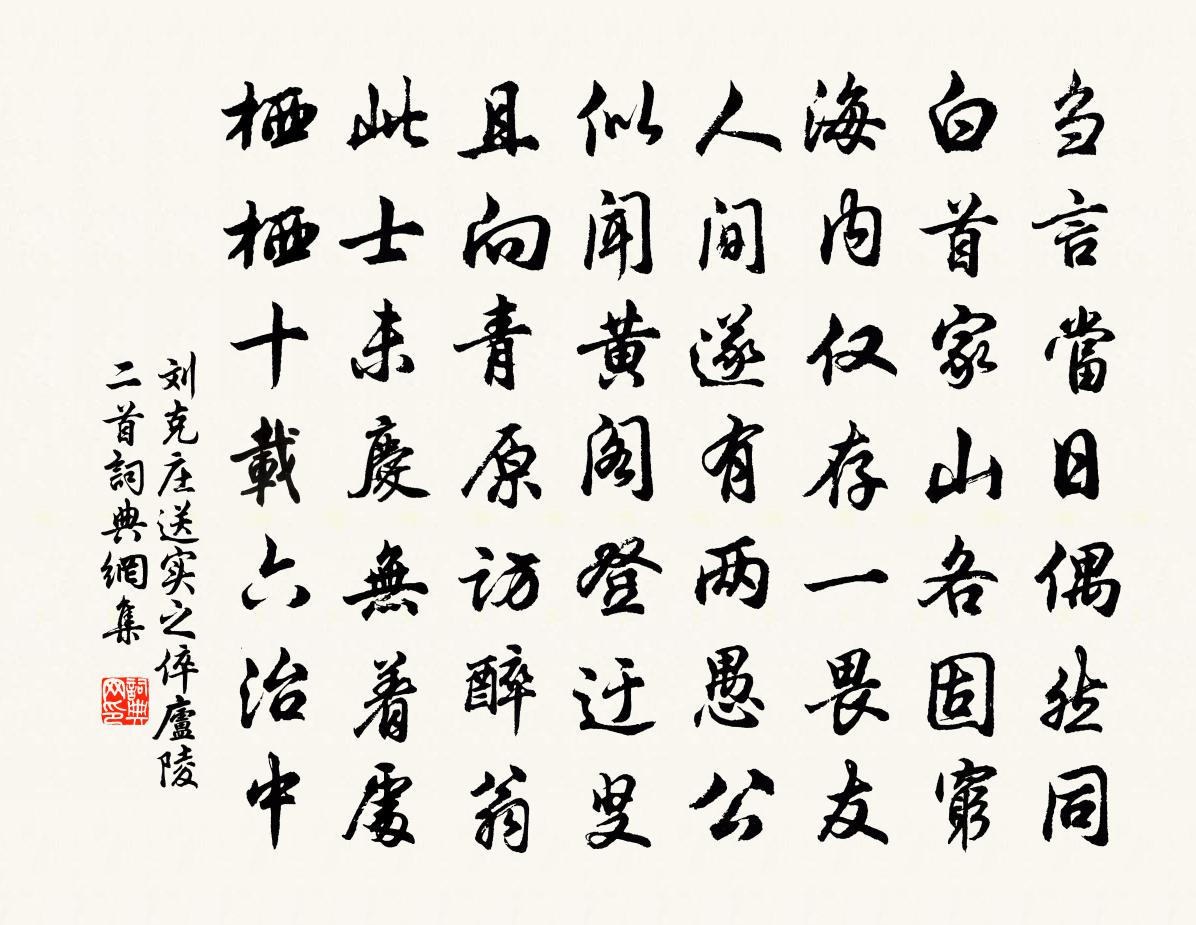 刍言當日偶然同
白首家山各固窮
海内仅存一畏友
人间遂有两愚公
似闻黄阁登迂叟
且向青原访醉翁
此士未慶無着處
栖栖十載六治中
刘克庄送实之倅廬陵
二首詞典網集
詞典网印